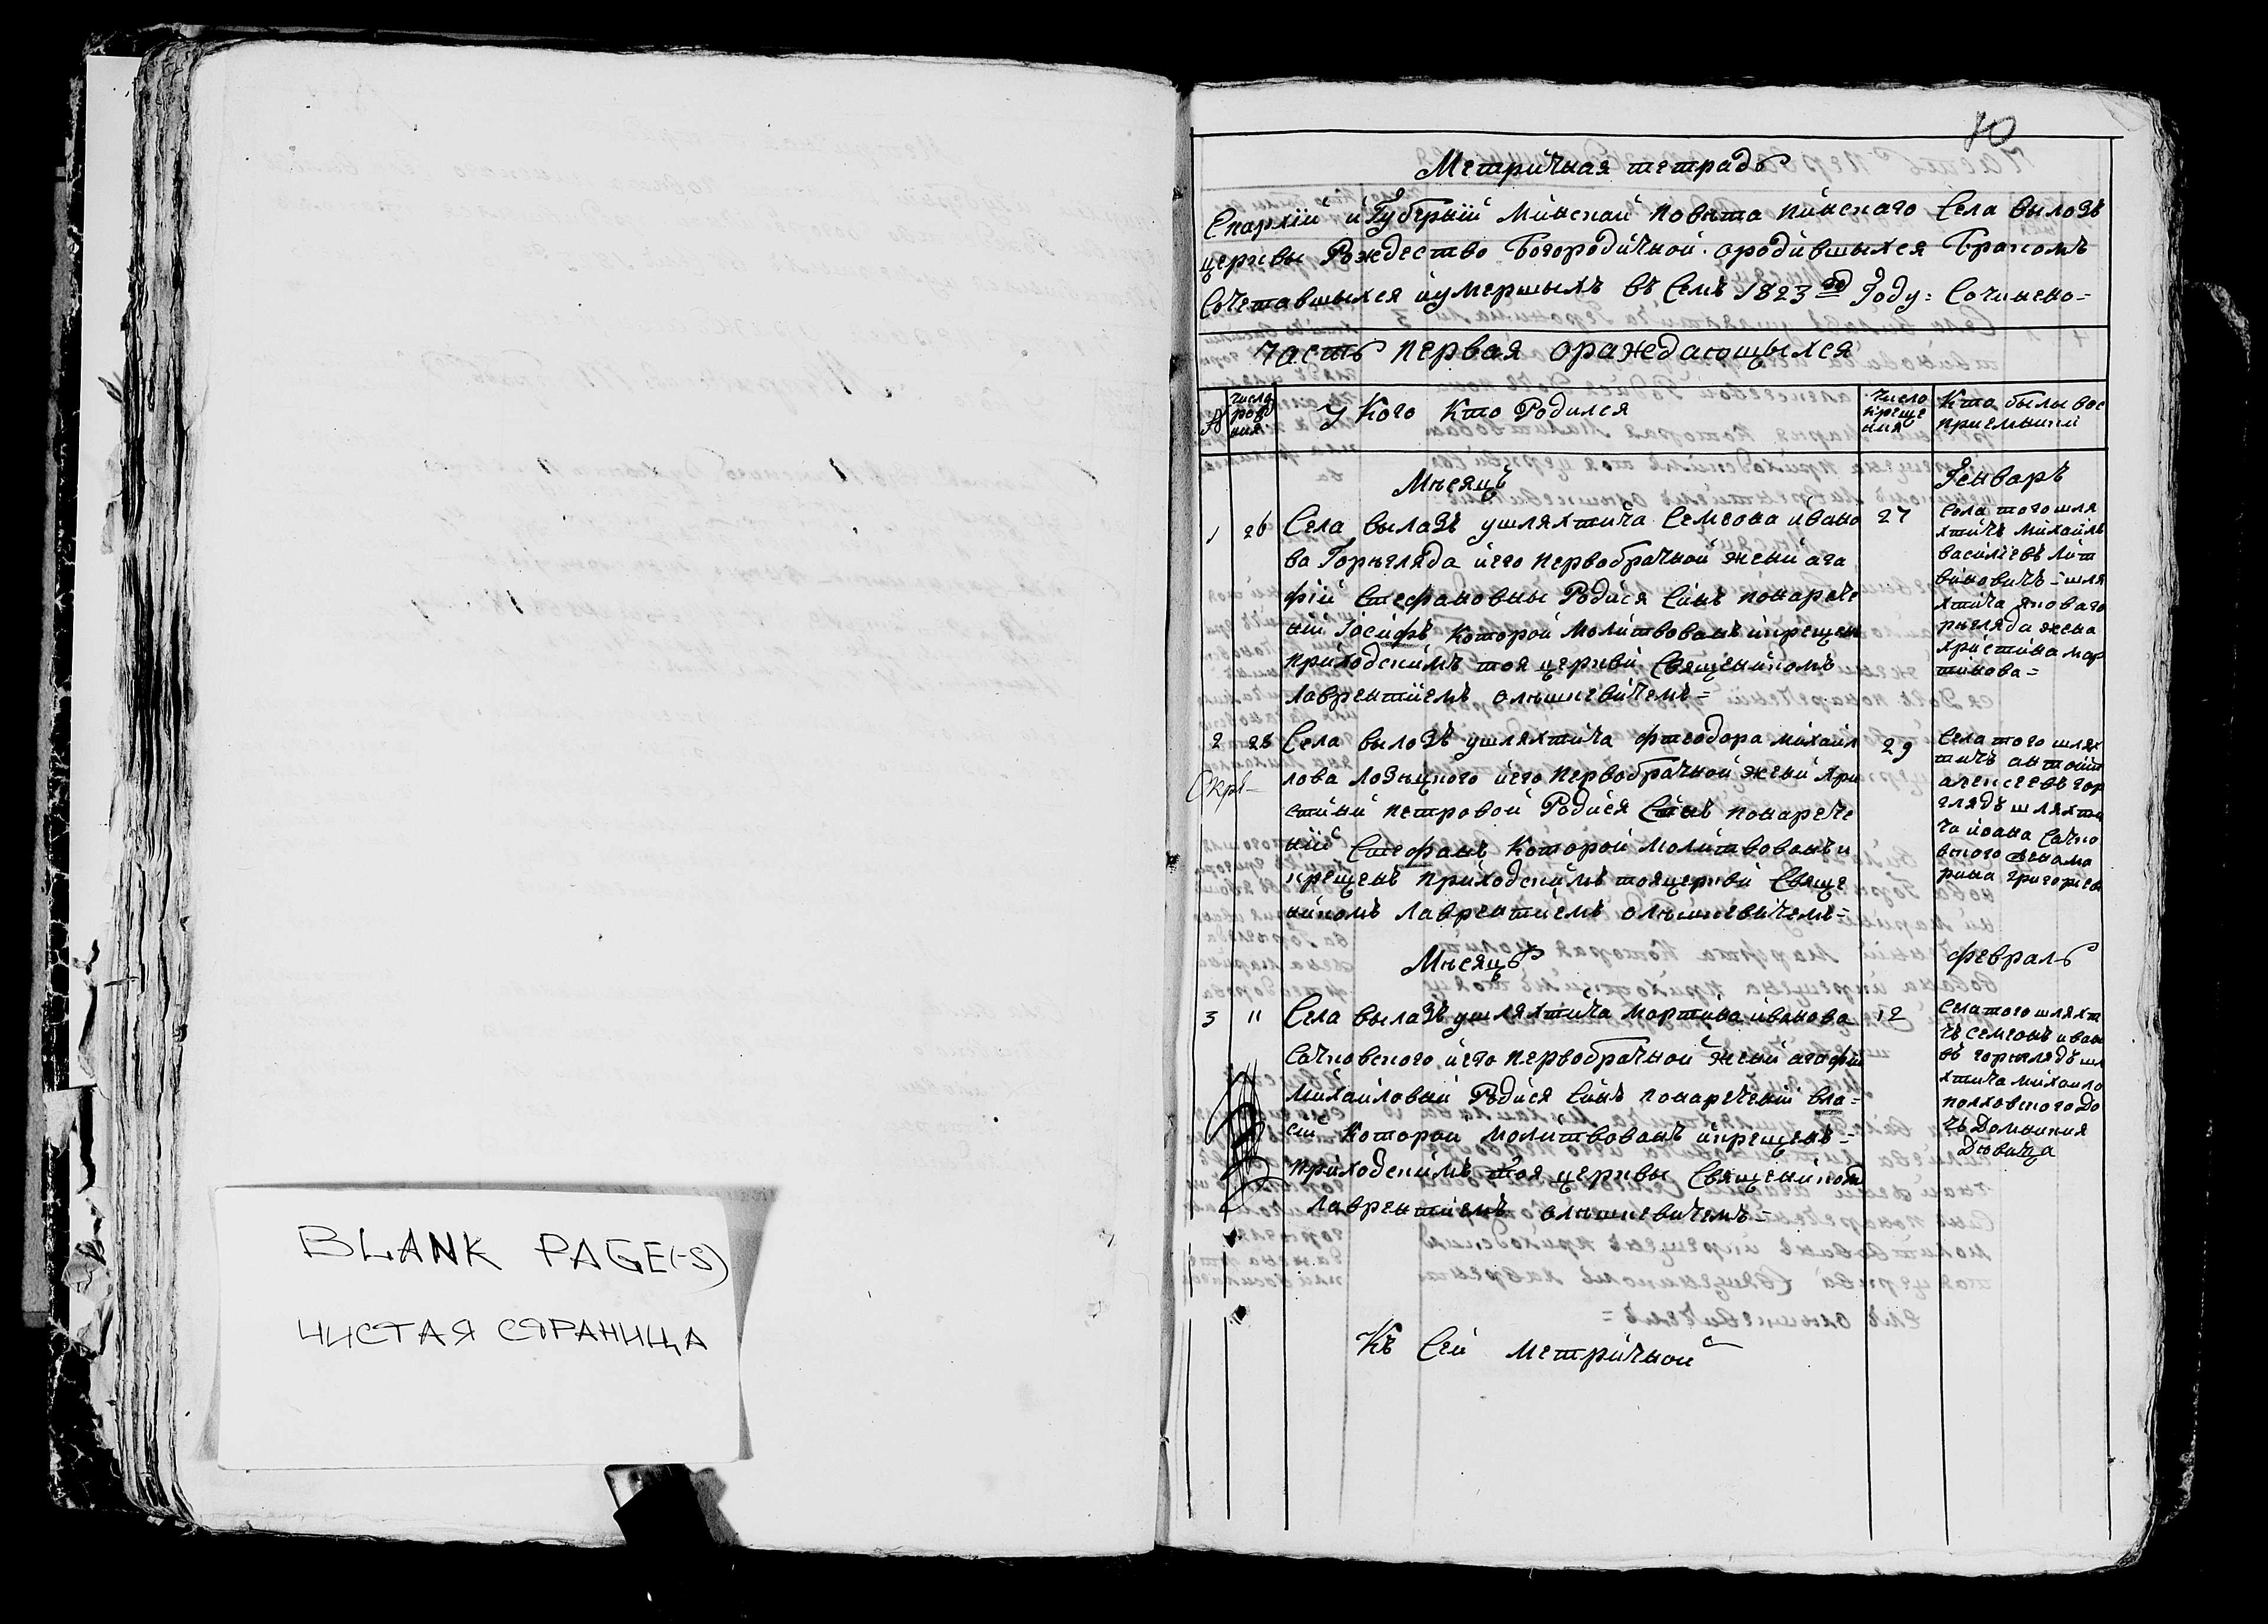 BLANK PAGE(-S)
ЧИСТАЯ СТРАНИЦА
10
Метричная тетрадь
Епархіи и Губерніи Минской повѣта пинскаго Села вылазъ
церквы Рождество Богородичной ородившыхся Бракомъ
Сочетавшыхся иумершыхъ въ Семъ 1823 Году: Сочинено=
часть первая ораждающыхся
№
число рожд ния
У Кого Кто Родился
число креще ния
Кто былы вос приемники
Мѣсяцъ
Генваръ
1
26
Села вылазъ ушляхтича Семеона ивано
ва Горегляда иего первобрачной жены ага
фіи Стефановны Родися Сынъ понарече
ный Іосифъ Которой молитвованъ икрещенъ
приходскимъ тоя церкви Священикомъ
лаврентиемъ олешкевичемъ=
27
Села того шля
хтичъ михаилъ
василіевъ лит
виновичъ = шля
хтича
регляда жена
христина мар
тинова=
2
28
Села вылазъ ушляхтича фтеодора михаил
лова лозицкого иего первобрачной жены хри
стины петровой Родися Сынъ понарече
ный Стефанъ Которой молитвованъ и
крещенъ приходскимъ тояцеркви Свяще
никомъ лаврентиемъ олешкевичемъ=
29
Села того шлях
тичъ антоній
алексеевъ гор
глядъ шляхти
ча иоана Сачко
вского жена ма
рина григориева
Мѣсяцъ
февраль
3
11
Села вылазъ ушляхтича мартина иванова
Сачковского иего первобрачной жены агафіи
михаиловны Родися Сынъ понареченый вла=
сий Которой молитвованъ икрещенъ=
приходскимъ тоя церквы Священикомъ
лаврентиемъ олешкевичемъ=
12
Села того шляхти
чъ семеонъ иван
въ гореглядъ шл
хтича михаило
полховского до
чъ домникия
дювица
Къ Сей метричной